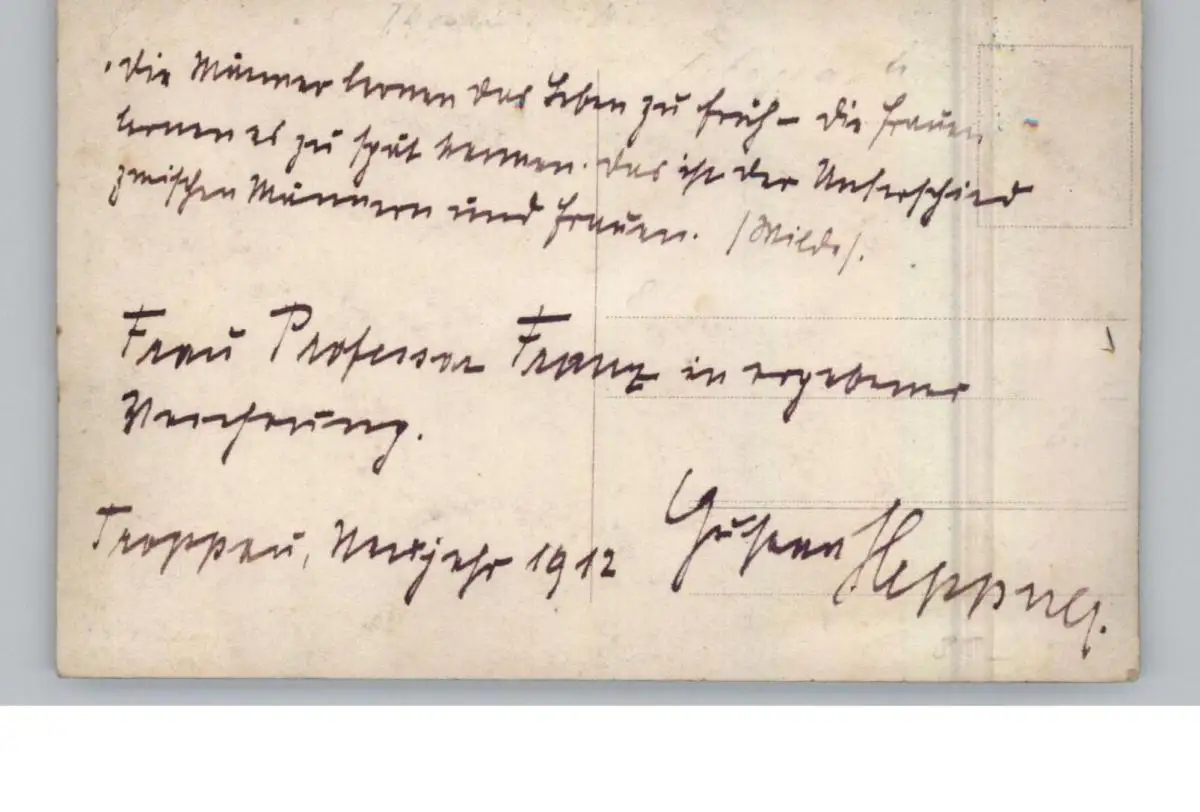 „Die Männer lernen das Leben zu früh – die Frauen
lernen es zu spät kennen. Das ist der Unterschied
zwischen Männern und Frauen. /Wilde/.
Frau Professor Franz in ergebener
Verehrung.
Troppau, Neujahr 1912
Gustav